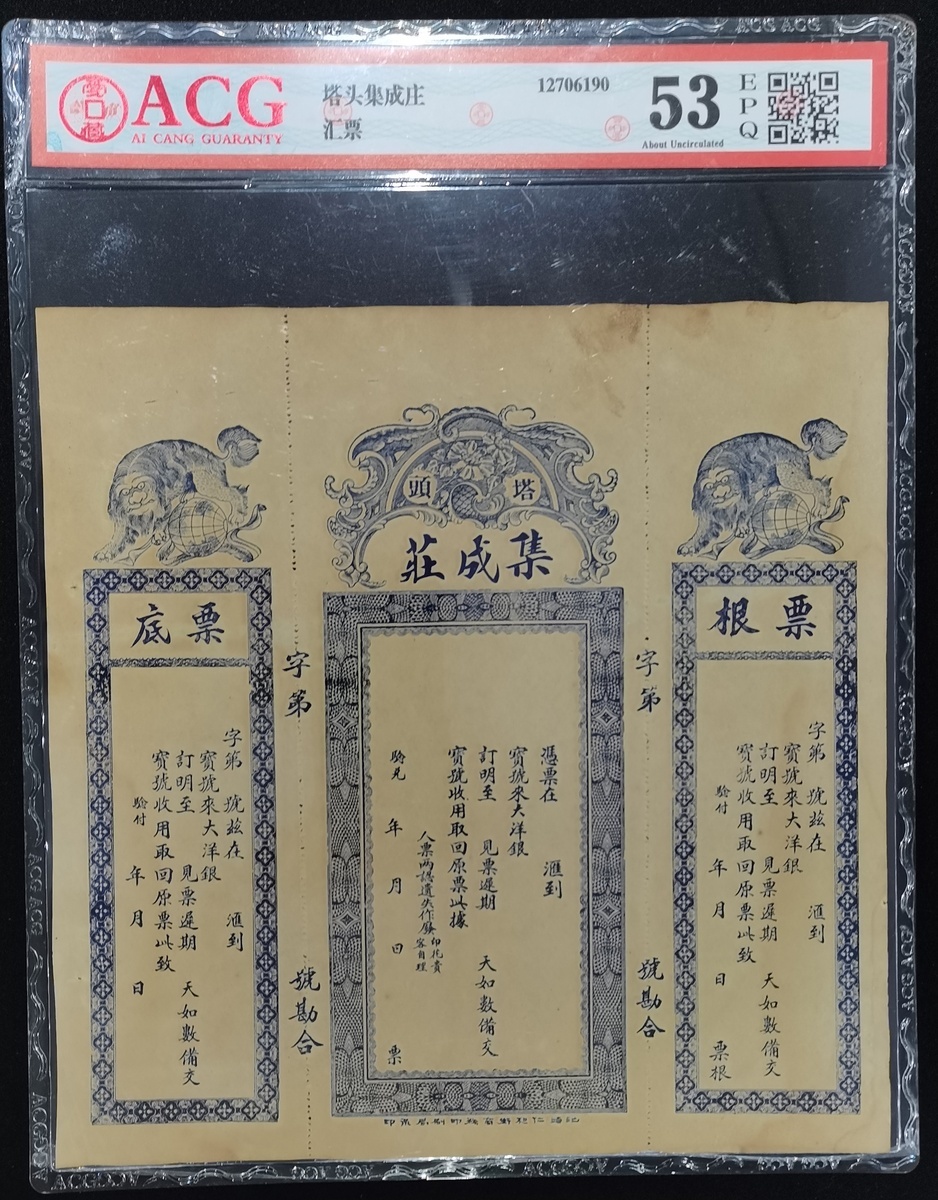 ACG
AI CANG GUARANTY
塔头集成庄
汇票
12706190
53
About Uncirculated
EPQ
塔頭
集成莊
票根
字第　號茲在　滙到
寳號來大洋銀
訂明至　見票遲期　天如數備交
寳號收用取回原票此致
驗付　年　月　日　票根
字第　號勘合
憑票在　滙到
寳號來大洋銀
訂明至　見票遲期　天如數備交
寳號收用取回原票此據
人票两認遺失作廢
印花貴客自理
驗兑　年　月　日　票
字第　號勘合
票底
字第　號茲在　滙到
寳號來大洋銀
訂明至　見票遲期　天如數備交
寳號收用取回原票此致
驗付　年　月　日